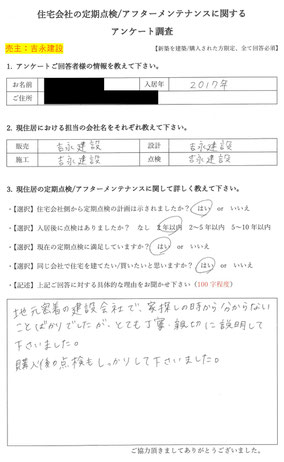 住宅会社の定期点検/アフターメンテナンスに関する
アンケート調査
売主：吉永建設
【新築を建築/購入された方限定、全て回答必須】
1. アンケートご回答者様の情報を教えて下さい。
お名前 入居年 2017年
ご住所
2. 現住居における担当の会社名をそれぞれ教えて下さい。
販売 吉永建設 設計 吉永建設
施工 吉永建設 点検 吉永建設
3. 現住居の定期点検/アフターメンテナンスに関して詳しく教えて下さい。
・【選択】住宅会社側から定期点検の計画は示されましたか？ はい or いいえ
・【選択】入居後に点検はありましたか？ なし 1年以内 2～5年以内 5～10年以内
・【選択】現在の定期点検に満足していますか？ はい or いいえ
・【選択】同じ会社で住宅を建てたい/買いたいと思いますか？ はい or いいえ
・【記述】上記ご回答に対する具体的な理由をお聞かせ下さい（100字程度）
地元密着の建設会社で、家探しの時から分からない
ことばかりでしたが、とても丁寧・親切に説明して
下さいました。
購入後の点検もしっかりして下さいました。
ご協力頂きましてありがとうございました。